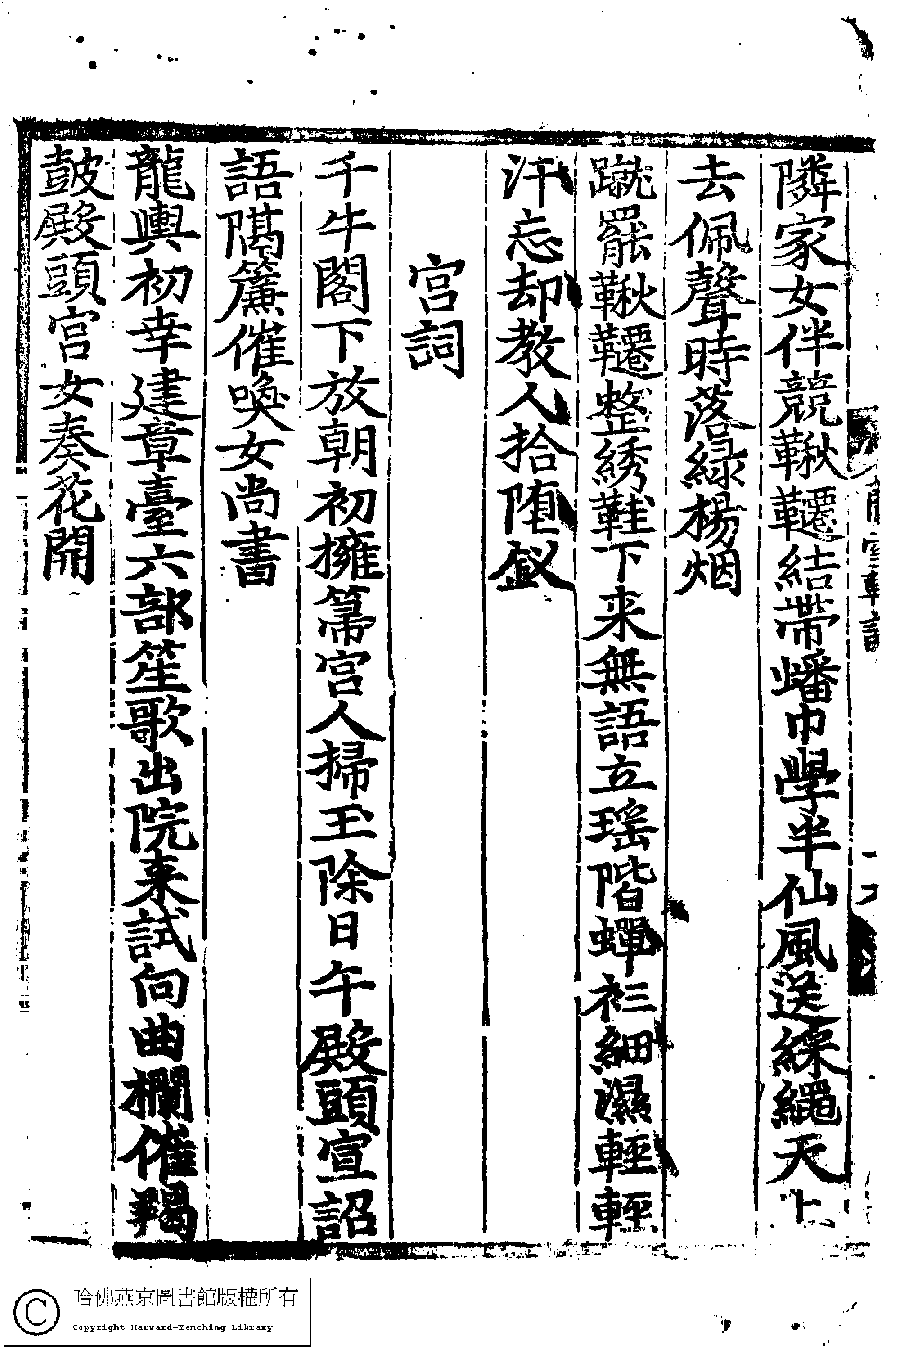 隣家女伴競鞦韆結帶蟠巾學半仙風送綵繩天上
去佩聲時落綠楊烟
蹴罷鞦韆整綉鞋下来無語立瑶階蟬衫細濕輕輕
汗忘却教人拾堕釵
宮詞
千牛閣下放朝初擁箒宮人掃玉除日午殿頭宣詔
語隔簾催喚女尚書
龍輿初幸建章臺六部笙歌出院来試向曲欄催羯
鼓殿頭宮女奏花開
哈佛燕京圖書館版權所有
Copyright Harvard-Yenching Library